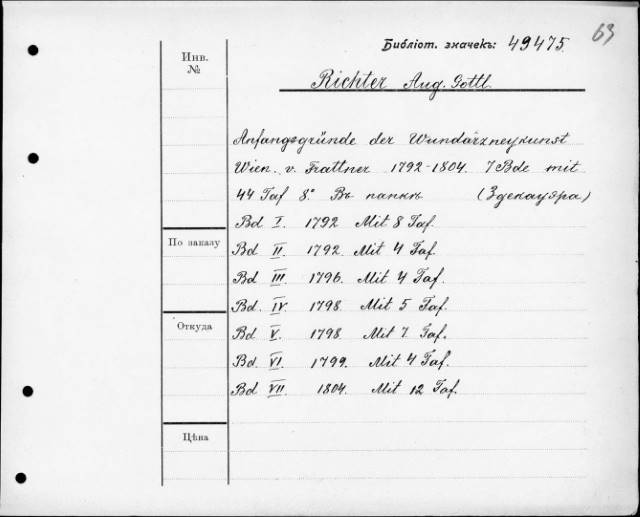 63
Библіот. значекъ: 49475.
Инв. №
Richter Aug. Gottl.
Anfangsgründe der Wundärzneykunst
Wien. v. Trattner 1792-1804. 7 Bde mit
44 Taf 8.° Въ папкѣ (Здекауэра)
Bd I. 1792 Mit 8 Taf.
По заказу
Bd II. 1792. Mit 4 Taf.
Bd III. 1796. Mit 4 Taf.
Bd. IV. 1798 Mit 5 Taf.
Откуда
Bd V. 1798. Mit 7 Taf.
Bd. VI. 1799. Mit 4 Taf.
Bd VII. 1804. Mit 12 Taf.
Цѣна